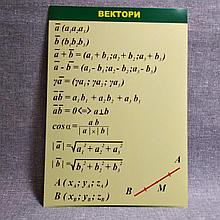 ВЕКТОРИ
a̅ (a₁a₂a₃)
b̅ (b₁b₂b₃)
a̅ + b̅ = (a₁+b₁;a₂+b₂;a₃+b₃)
a̅ - b̅ = (a₁-b₁;a₂-b₂;a₃-b₃)
γa̅ = (γa₁;γa₂;γa₃)
a̅b̅ = a₁b₁ + a₂b₂ + a₃b₃
a̅b̅ = 0 <=> a⊥b
cos α = ab / |a|×|b|
|a̅| = √a₁²+a₂²+a₃²
|b̅| = √b₁²+b₂²+b₃²
A (xA;yA;zA)
B (xB;yB;zB)
A
M
B